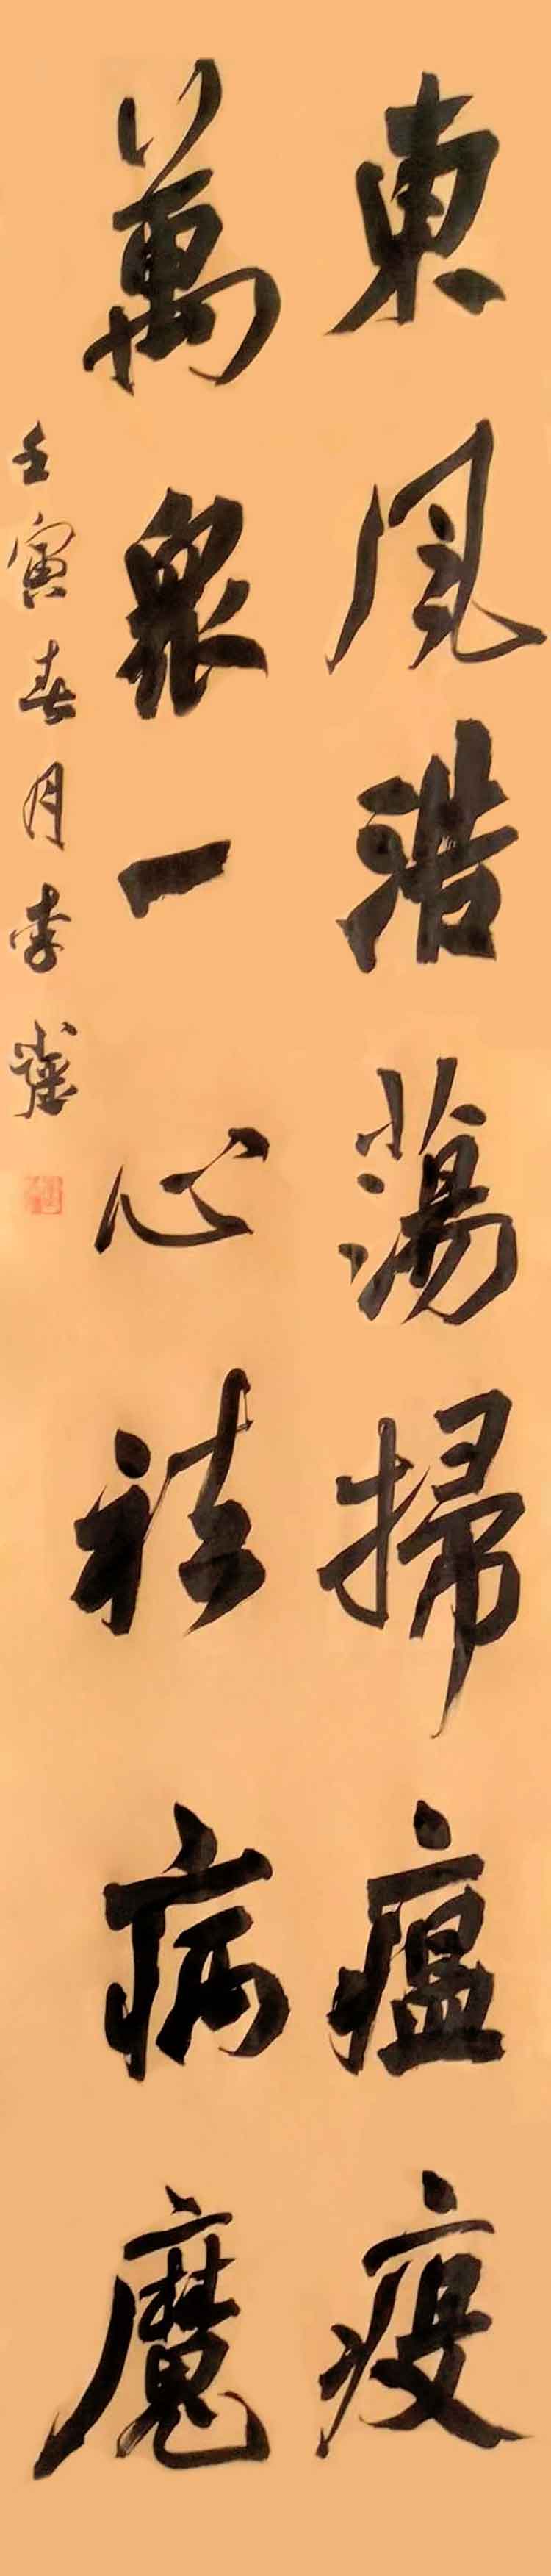 東風浩蕩掃瘟疫
萬眾一心祛病魔
壬寅春月李